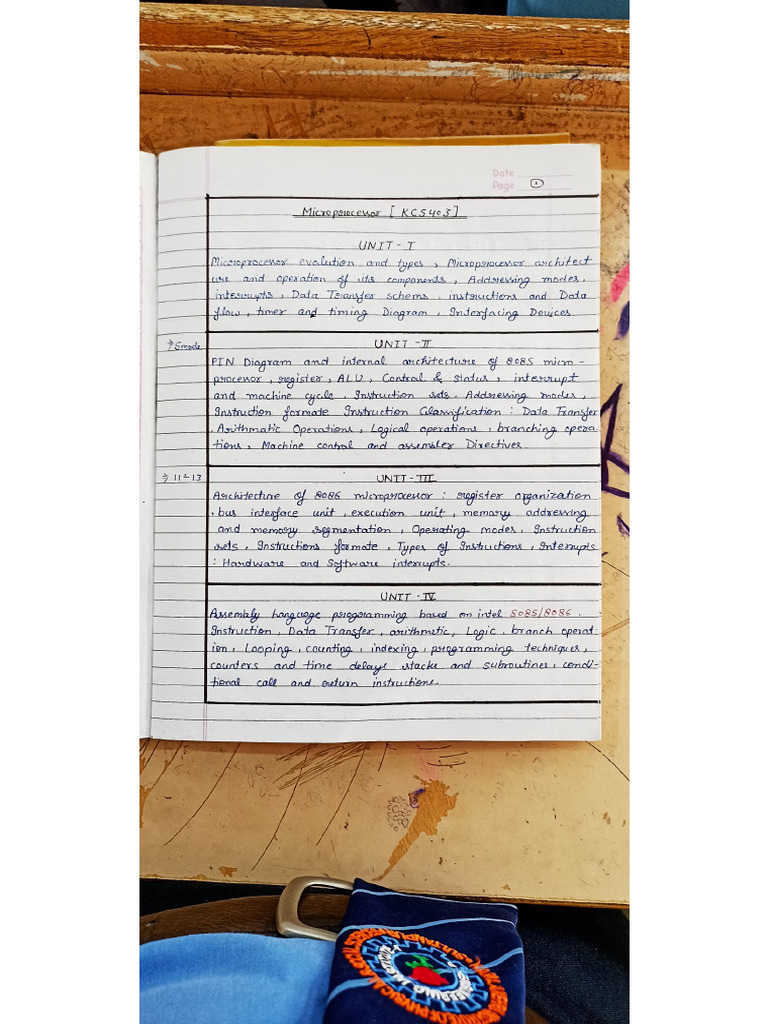 Date
Page 1
Microprocessor [KCS403]
UNIT-I
Microprocessor evalution and types, Microprocessor architect
ure and operation of its components, Addressing modes,
interrupts, Data Transfer schems, instructions and Data
flow, timer and timing Diagram, Interfacing Devices.
→ 5mode
UNIT-II
PIN Diagram and internal architecture of 8085 micro-
processor, register, ALU, Control & status, interrupt
and machine cycle, Instruction sets, Addressing modes,
Instruction formate Instruction Classification: Data Transfer
, Arithmatic Operations, Logical operations, branching opera-
tions, Machine control and assembler Directives.
→ 11-13
UNIT-III
Architecture of 8086 microprocessor: register organization
, bus interface unit, execution unit, memory addressing
and memory segmentation, Operating modes, Instruction
sets, Instructions formate, Types of Instructions, Interrupts
: Hardware and Software interrupts.
UNIT-IV
Assembly Language programming based on intel 8085/8086.
Instruction, Data Transfer, arithmetic, Logic, branch operat
ion, Looping, counting, indexing, programming techniques,
counters and time delays stacks and subroutines, condi-
tional call and return instructions.